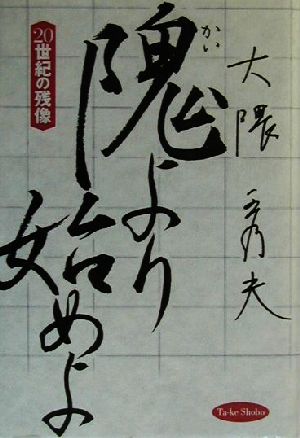 大隈秀夫
かい
隗より
始めよ
20世紀の残像
Ta-ke Shobo